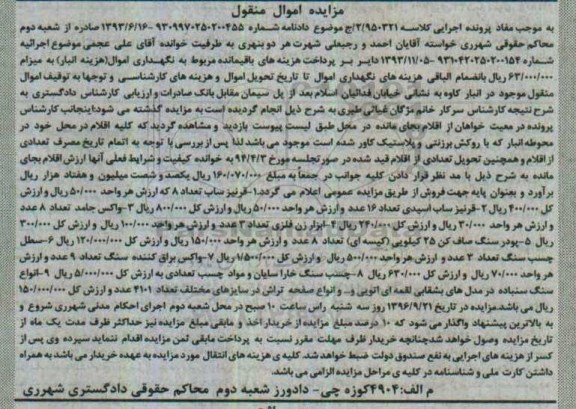 مزایده اموال منقول
به موجب مفاد پرونده اجرایی کلاسه ۲/۹۵۰۳۲۱/ج موضوع دادنامه شماره ۹۳۰۹۹۷۰۲۵۰۲۰۰۴۵۵ -۱۳۹۳/۶/۱۶ صادره از شعبه دوم
محاکم حقوقی شهرری خواسته آقایان احمد و رجبعلی شهرت هر دو بنهری به طرفیت خوانده آقای علی عجمی موضوع اجرائیه
شماره ۹۳۱۰۴۲۰۲۵۰۲۰۰۱۵۴ -۱۳۹۳/۱۱/۰۵ دایر بر پرداخت هزینه های باقیمانده مربوط به نگهداری اموال(هزینه انبار) به میزام
۶۳/۰۰۰/۰۰۰ ریال بانضمام الباقی هزینه های نگهداری اموال تا تاریخ تحویل اموال و هزینه های کارشناسی و توجها به توقیف اموال
منقول موجود در انبار کاوه به نشانی خیابان فدائیان اسلام بعد از پل سیمان مقابل بانک صادرات و ارزیابی کارشناس دادگستری به
شرح نتیجه کارشناس سرکار خانم مژگان غیاثی طبری به شرح ذیل انجام گردیده است به مزایده گذشته می شود:اینجانب کارشناس
پرونده در معیت خواهان از اقلام بجای مانده در محل طبق لیست پیوست بازدید و مشاهده گردید که کلیه اقلام در محل خود در
محوطه انبار که با روکش برزنتی و پلاستیک کاور شده است موجود می باشد لذا پس از بررسی با توجه به اتمام تاریخ مصرف تعدادی
از اقلام و همچنین تحویل تعدادی از اقلام قید شده در صورتجلسه مورخ ۹۴/۴/۳ به خوانده کیفیت و شرایط فعلی آنها ارزش اقلام بجای
مانده به شرح ذیل با مد نظر قرار دادن کلیه جوانب در جمعاً به مبلغ ۱۶۰/۰۷۰/۰۰۰ ریال یکصد و شصت میلیون و هفتاد هزار ریال
برآورد و بعنوان پایه جهت فروش از طریق مزایده عمومی اعلام می گردد.۱-قرنیز ساب تعداد ۸ که ارزش هر واحد ۵۰/۰۰۰ ریال و ارزش
کل ۴۰۰/۰۰۰ ریال ۲-قرنیز ساب اسیدی تعداد ۱۶ عدد و ارزش هر واحد ۵۰/۰۰۰ ریال و ارزش کل ۸۰۰/۰۰۰ ریال ۳-واکس جامد تعداد ۸ عدد
هر واحد ۳۰/۰۰۰ ریال و ارزش کل ۲۴۰/۰۰۰ ریال ۴-ابزار زن فلزی تعداد ۳ عدد و ارزش هر واحد ۱۰۰/۰۰۰ ریال و ارزش کل ۳۰۰/۰۰۰
ریال ۵-پودر سنگ صاف کن ۲۵ کیلویی (کیسه ای) تعداد ۸ عدد و ارزش هر واحد ۱۵۰/۰۰۰ ریال و ارزش کل ۱۲۰/۰۰۰/۰۰۰ ریال ۶-سطل
چسب سنگ تعداد ۳ عدد و ارزش هر واحد ۵۰۰/۰۰۰ ریال و ارزش کل ۱/۵۰۰/۰۰۰ ریال ۷-واکس براق کننده سنگ تعداد ۹ عدد و ارزش
هر واحد ۷۰/۰۰۰ ریال و ارزش کل ۶۳۰/۰۰۰ ریال ۸-چسب سنگ خارا سایان و مواد چسب تعدادی به ارزش کل ۵/۰۰۰/۰۰۰ ریال ۹-انواع
سنگ سنباده در مدل های بشقابی لقمه ای اتویی و... و انواع صفحه تراش در سایزهای مختلف تعداد ۴۱۰۱ عدد و ارزش کل ۱۵۰/۰۰۰/۰۰۰
ریال می باشد.مزایده در تاریخ ۱۳۹۶/۹/۲۱ روز سه شنبه راس ساعت ۱۰ صبح در محل شعبه دوم اجرای احکام مدنی شهرری شروع و
به بالاترین پیشنهاد واگذار می شود که ۱۰ درصد مبلغ مزایده از خریدار اخذ و مابقی مبلغ مزایده نیز حداکثر ظرف مدت یک ماه از
تاریخ مزایده وصول خواهد شدچنانچه خریدار ظرف مهلت مقرر نسبت به پرداخت مابقی ثمن مزایده اقدام ننماید سپرده وی پس از
کسر از هزینه های اجرایی به نفع صندوق دولت ضبط خواهد شد. کلیه ی هزینه های انتقال مورد مزایده به عهده خریدار می باشد به همراه
داشتن کارت ملی و شناسنامه در کلیه ی مراحل مزایده الزامی می باشد.
م الف:۴۹۰۴کوزه چی- دادورز شعبه دوم محاکم حقوقی دادگستری شهرری